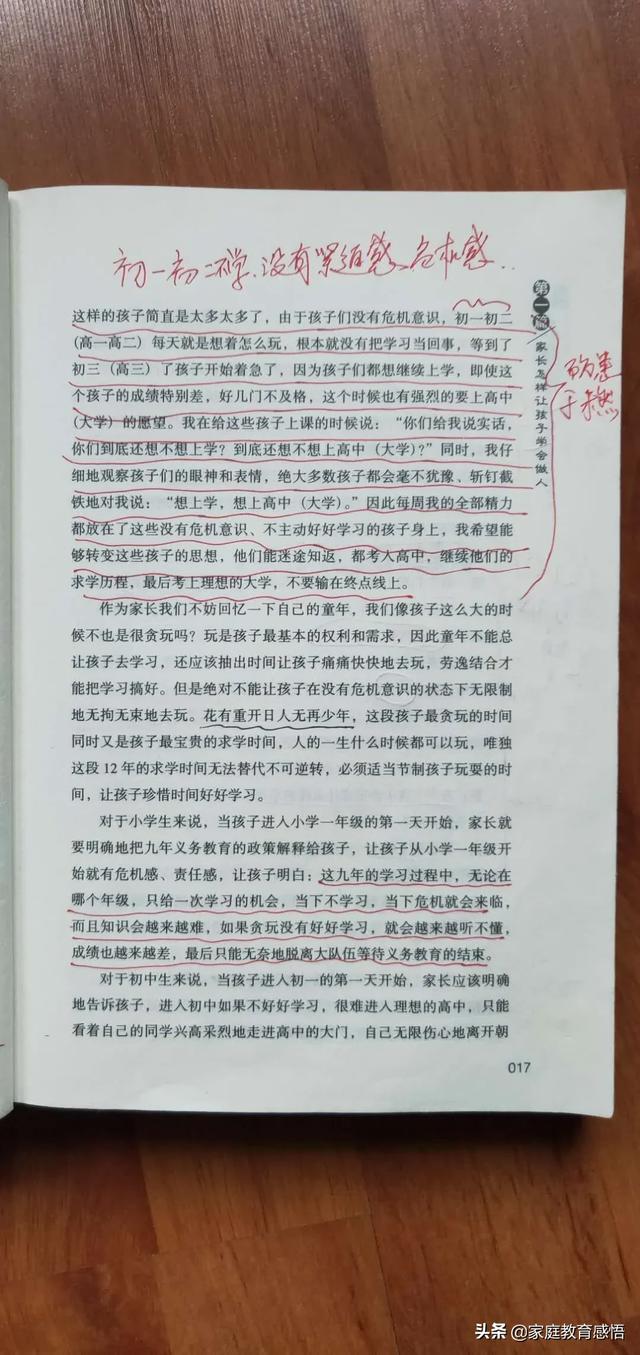 初一初二不学、没有紧迫感、危机感..
第一篇 家长怎样让孩子学会做人
防患于未然
这样的孩子简直是太多太多了，由于孩子们没有危机意识，初一初二
（高一高二）每天就是想着怎么玩，根本就没有把学习当回事，等到了
初三（高三）了孩子开始着急了，因为孩子们都想继续上学，即使这
个孩子的成绩特别差，好几门不及格，这个时候也有强烈的要上高中
（大学）的愿望。我在给这些孩子上课的时候说：“你们给我说实话，
你们到底还想不想上学？到底还想不想上高中（大学）？”同时，我仔
细地观察孩子们的眼神和表情，绝大多数孩子都会毫不犹豫、斩钉截
铁地对我说：“想上学，想上高中（大学）。”因此每周我的全部精力
都放在了这些没有危机意识、不主动好好学习的孩子身上，我希望能
够转变这些孩子的思想，他们能迷途知返，都考入高中，继续他们的
求学历程，最后考上理想的大学，不要输在终点线上。
作为家长我们不妨回忆一下自己的童年，我们像孩子这么大的时
候不也是很贪玩吗？玩是孩子最基本的权利和需求，因此童年不能总
让孩子去学习，还应该抽出时间让孩子痛痛快快地去玩，劳逸结合才
能把学习搞好。但是绝对不能让孩子在没有危机意识的状态下无限制
地无拘无束地去玩。花有重开日人无再少年，这段孩子最贪玩的时间
同时又是孩子最宝贵的求学时间，人的一生什么时候都可以玩，唯独
这段 12 年的求学时间无法替代不可逆转，必须适当节制孩子玩耍的时
间，让孩子珍惜时间好好学习。
对于小学生来说，当孩子进入小学一年级的第一天开始，家长就
要明确地把九年义务教育的政策解释给孩子，让孩子从小学一年级开
始就有危机感、责任感，让孩子明白：这九年的学习过程中，无论在
哪个年级，只给一次学习的机会，当下不学习，当下危机就会来临，
而且知识会越来越难，如果贪玩没有好好学习，就会越来越听不懂，
成绩也越来越差，最后只能无奈地脱离大队伍等待义务教育的结束。
对于初中生来说，当孩子进入初一的第一天开始，家长应该明确
地告诉孩子，进入初中如果不好好学习，很难进入理想的高中，只能
看着自己的同学兴高采烈地走进高中的大门，自己无限伤心地离开朝
017
头条 @家庭教育感悟